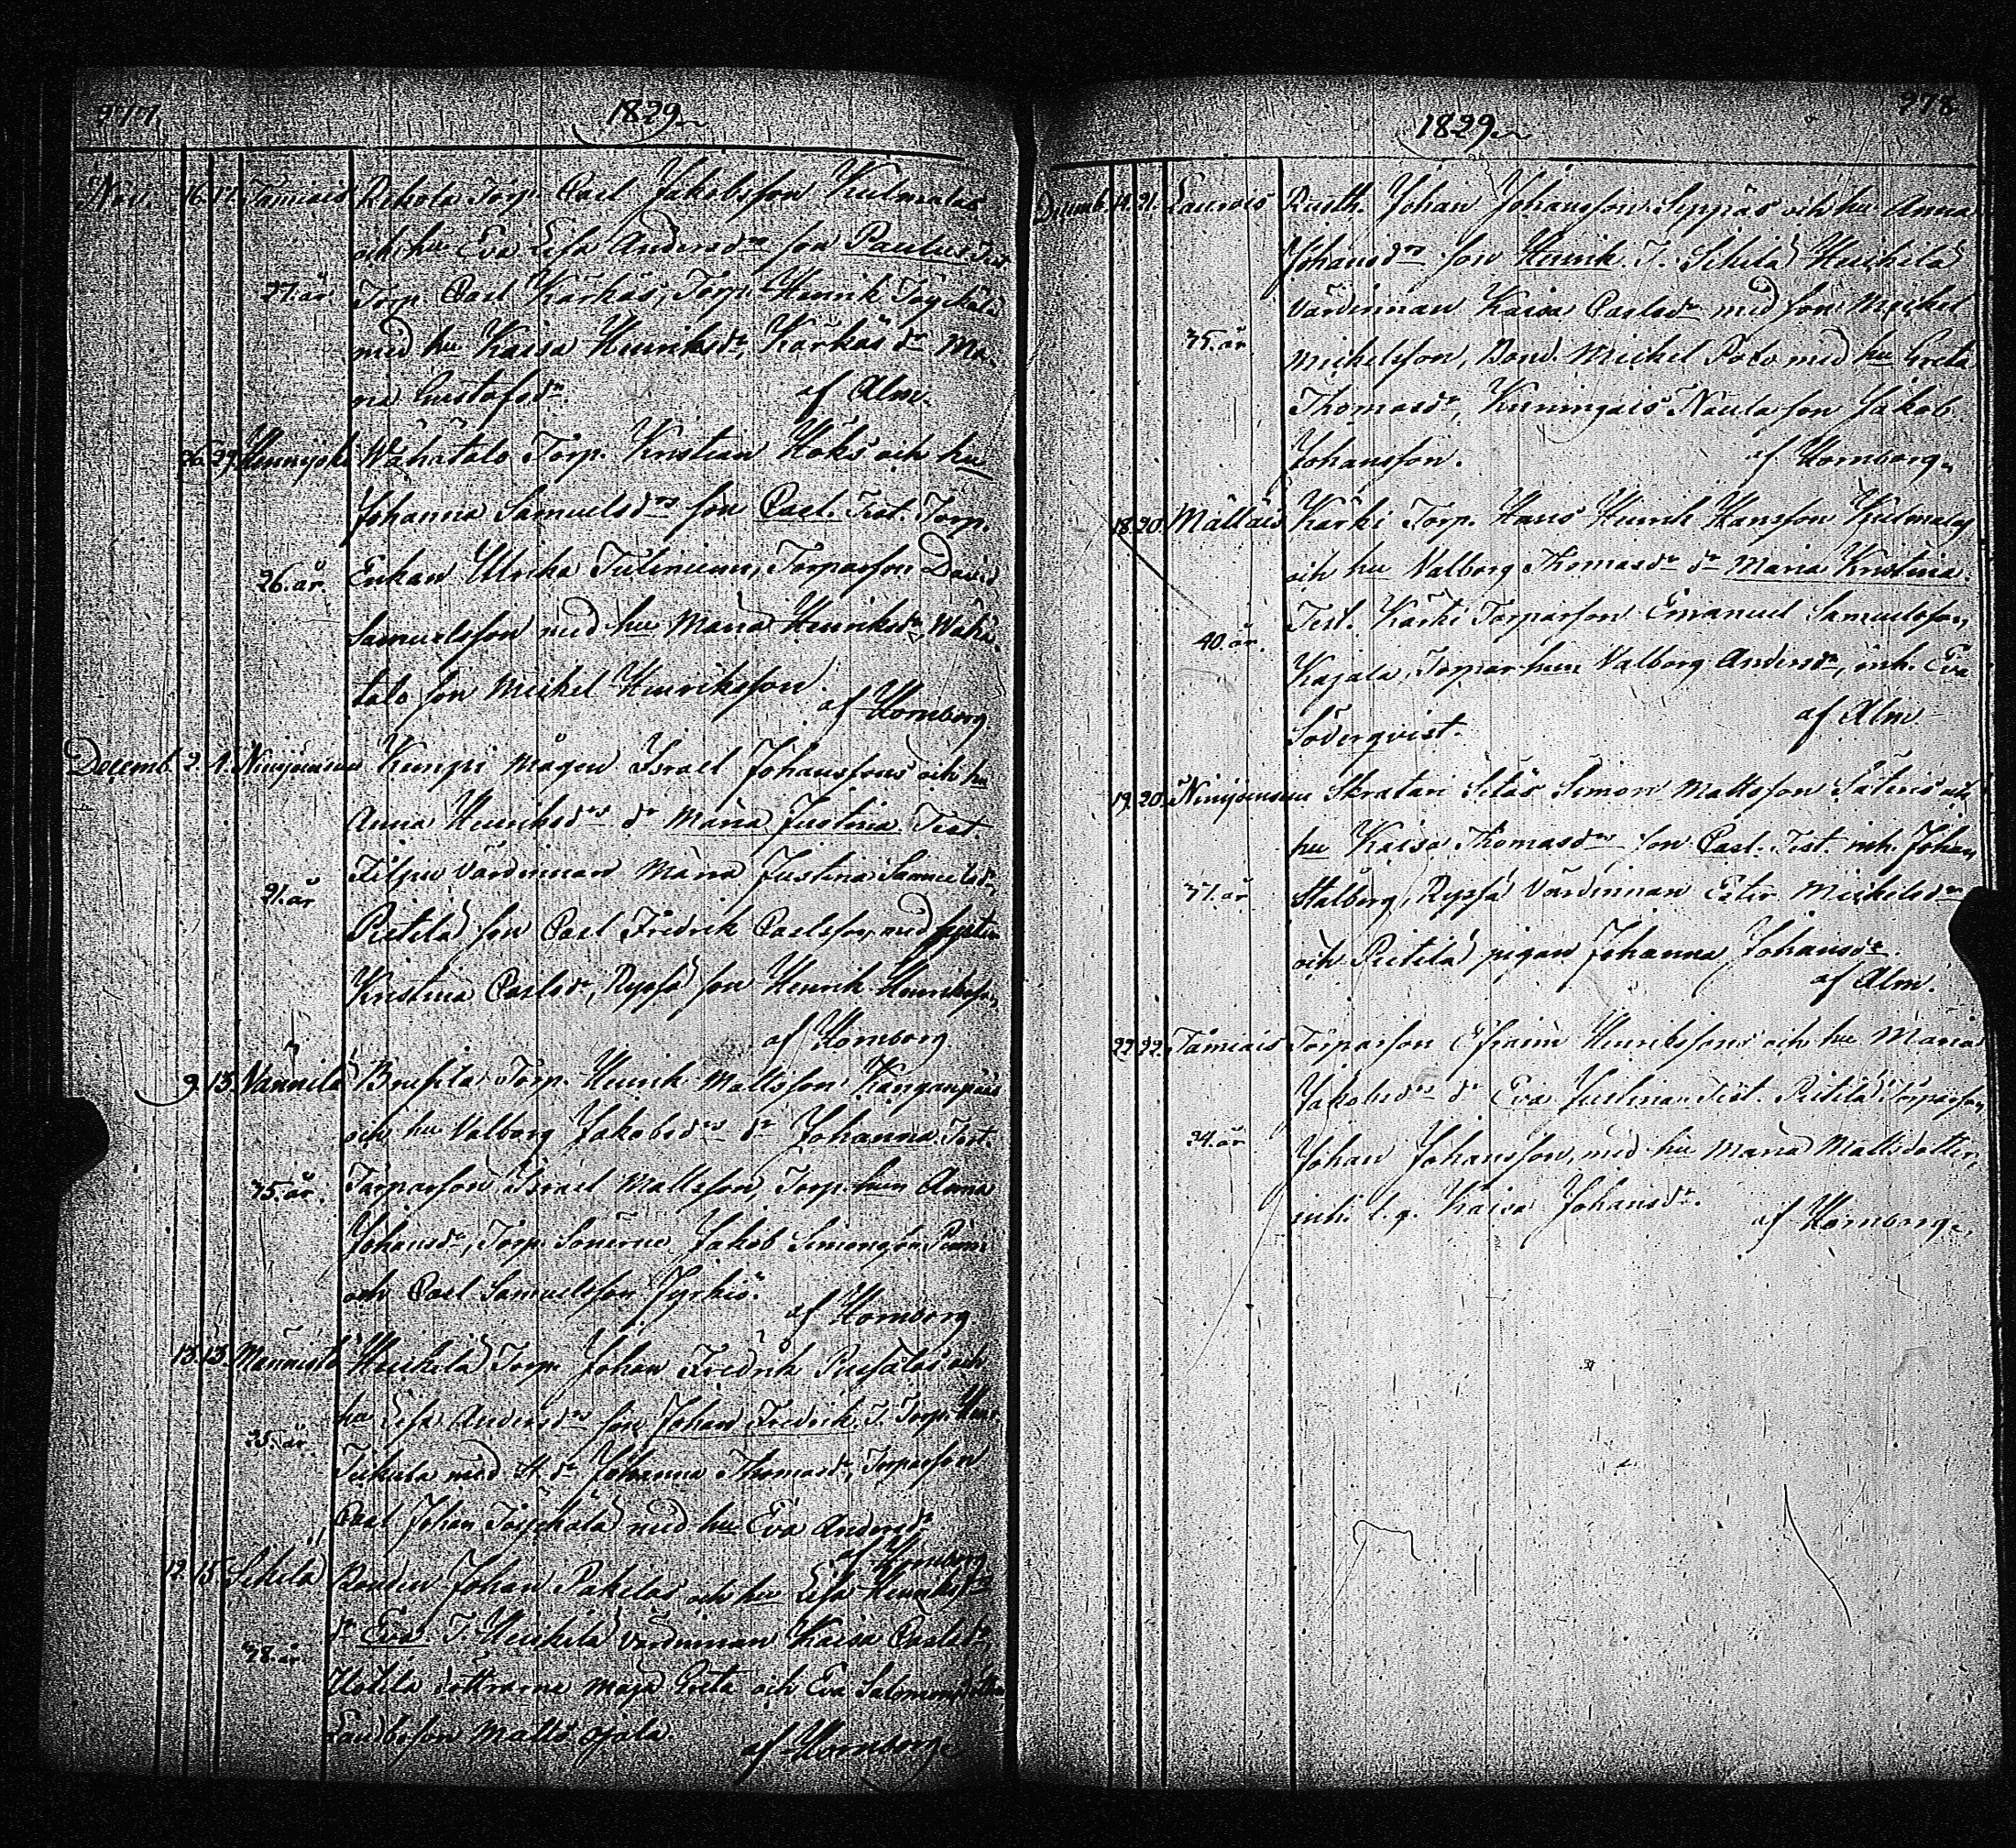 277.
1829
Nov. 16. 17. Tamiais Rekola Torp. Carl Jakobsson Kulmalas
och hu Eva Lisa Andersdrs son Paulus. Test
27. år. Torp. Carl Kärkäs, Torp. Henrik
med hu Kaisa Henriksdr, Kärkäs dr Ma-
ria Gustafsdr. af Alm.
26. 29. Wähätalo Torp. Kristian Höks och hu
Johanna Samuelsdrs son Carl. Test. Torp.
26. år. Enkan Ulrika Torparson David
Samuelsson med hu Maria Henriksdr, Wähä-
talo son Mickel Henriksson.
af Hornborg
Decemb. 3. 4. Kumpi mågen Israel Johanssons och hu
Anna Henriksdrs dr Maria Justina. Test
21. år Filpu Värdinnan Maria Justina Samuelsdr,
Pietilä son Carl Fredrik Carlsson, med syster
Kristina Carlsdr, Ryssä son Henrik Henriksson,
af Hornborg
9. 13. Vännilä Torp. Henrik Mattsson Kanganpääs
och hu Valborg Jakobsdrs dr Johanna. Test.
35. år. Torparson Israel Mattsson, Torp. hun Anna
Johansdr, Torp. Sönerne Jakob Simonsson
och Carl Samuelsson Jyrkis.
af Hornborg
13. 13. Männistö Heikilä Torp. Johan Fredrik och
hu Lisa Andersdrs son Johan Fredrik. T. Torp.
25. år. med dr Johanna Thomasdr, Torparson
Carl Johan med hu Eva Andersdr.
af Hornborg
12. 15. Sikilä Bonden Johan Pakilas och hu Lisa Henriksdrs
dr Eva. T. Heikilä värdinnan Kaisa Carlsdr,
38. år. Uotila döttrarne Maja Greta och Eva
Matts Ojala. af Hornborg
278
1829
Decemb. 14. 21. Lauvois Rusth. Johan Johansson Seppäs och hu Anna
Johansdrs son Henrik. T. Sikilä Heikilä
Värdinnan Kaisa Carlsdr med son Mickel
35. år Mickelsson, Bond. Mickel Poto med hu Greta
Thomasdr, Kuningais Naula son Jakob
Johansson. af Hornborg.
18. 20. Mällais Kärki Torp. Hans Henrik Hansson Kulmalas
och hu Valborg Thomasdrs dr Maria Kristina.
40. år. Test. Kärki Torparson Emanuel Samuelsson,
Kajala Torpar hun Valborg Andersdr, inh. Eva
Söderqvist. af Alm
19. 20. Skratari Setäs Simon Mattsson Säteris och
hu Kaisa Thomasdrs son Carl. Test. inh. Johan
37. år Stålberg, Ryssä Värdinnan Ester Mickelsdr
och Pietilä pigan Johanna Johansdr.
af Alm.
22. 22. Tamiais Torparson Efraim Henrikssons och hu Maria
Jakobsdrs dr Eva Justina. Test. Pietilä Torparson
24. år Johan Johansson, med hu Maria Mattsdotter,
inh. l. q. Kaisa Johansdr. af Hornborg.